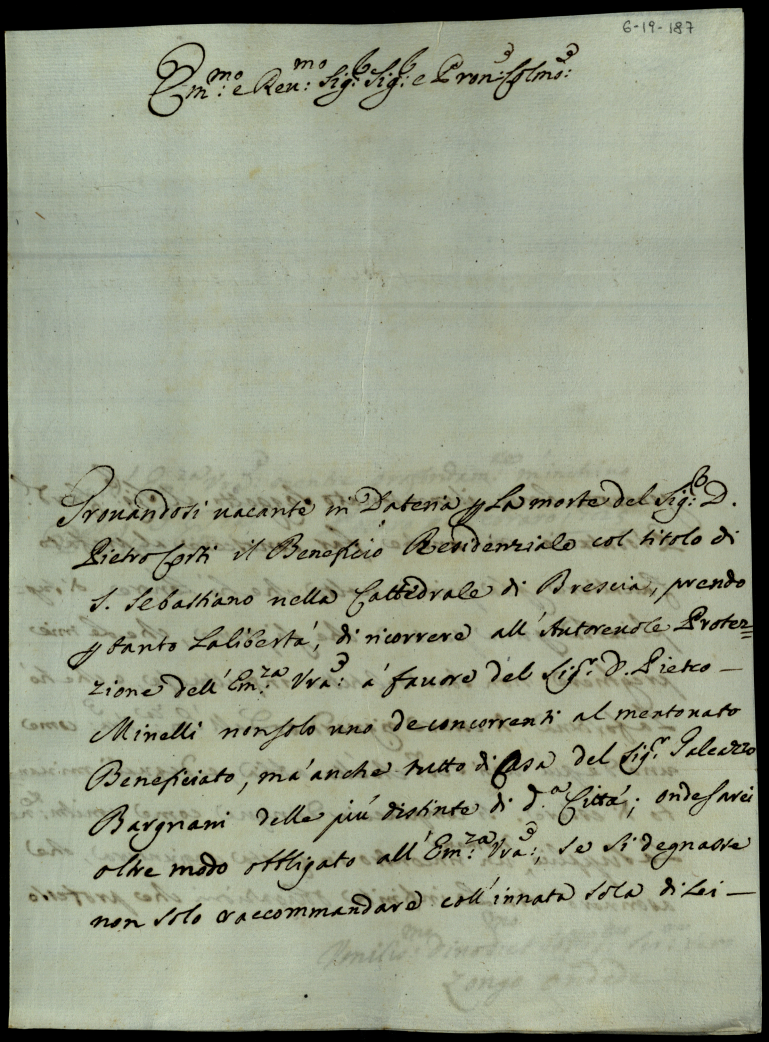 6-19-187
Em:mo e Reu:mo Sig:r Sig:r e Pron: Colmo:
Trouandosi uacante in Dateria p La morte del Sig:r D.
Pietro Corti il Beneficio Residenziale col titolo di
S. Sebastiano nella Cattedrale di Brescia, prendo
p tanto La libertà, di ricorrere all' Autoreuole Protez=
zione dell' Em:za Vra: à fauore del Sig:r D. Pietro —
Minelli non solo uno de concorrenti al mentouato
Beneficiato, mà anche tutto di Casa del Sig:r Galeazzo
Bargnani delle più distinte di d:a Città; onde sarei
oltre modo obligato all' Em:za Vra:, se si degnasse
non solo raccommandare coll' innata sola di Lei —